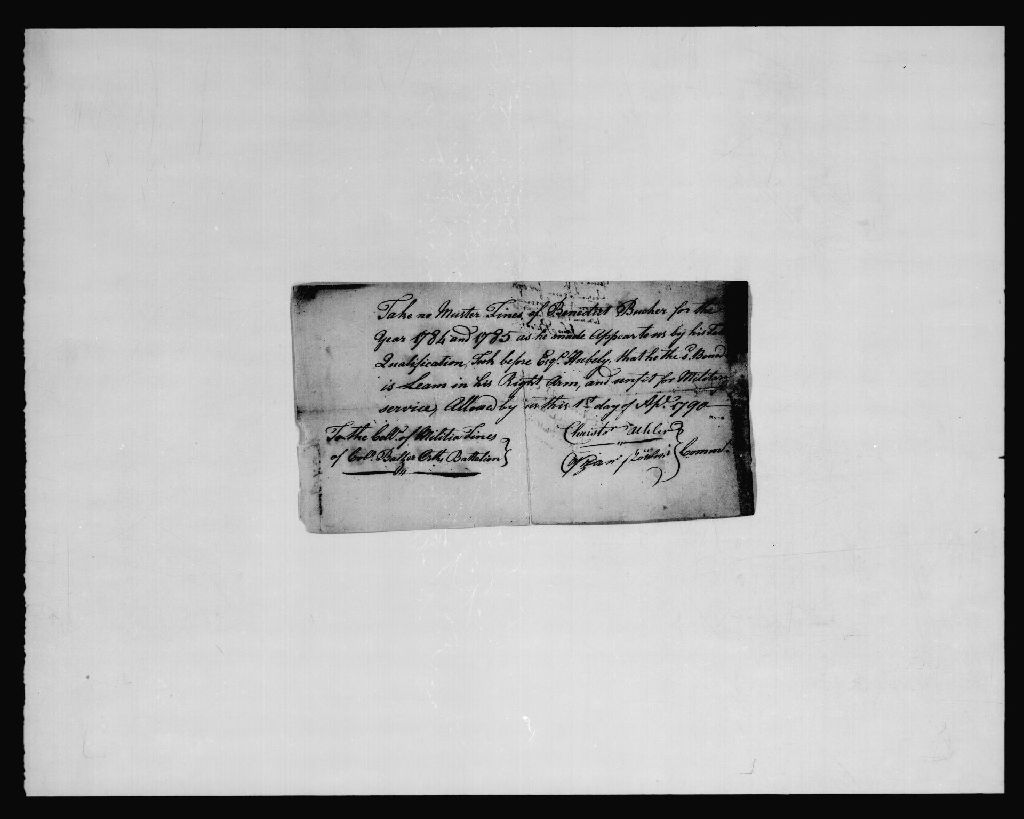 Take no Muster Fines, of Benedict Bucher for the
Year 1784 and 1785 as he made Appear to us by his
Qualification, Took before Esqr. Hubely, that he the sd. Bened
is Leam in his Right Arm, and unfit for Military
service, Allowed by us this 1st day of Apl. 1790
To the Collr. of Militia Fines
of Coll. Balser Orth Battalion
Christr. Uhler
Comms.